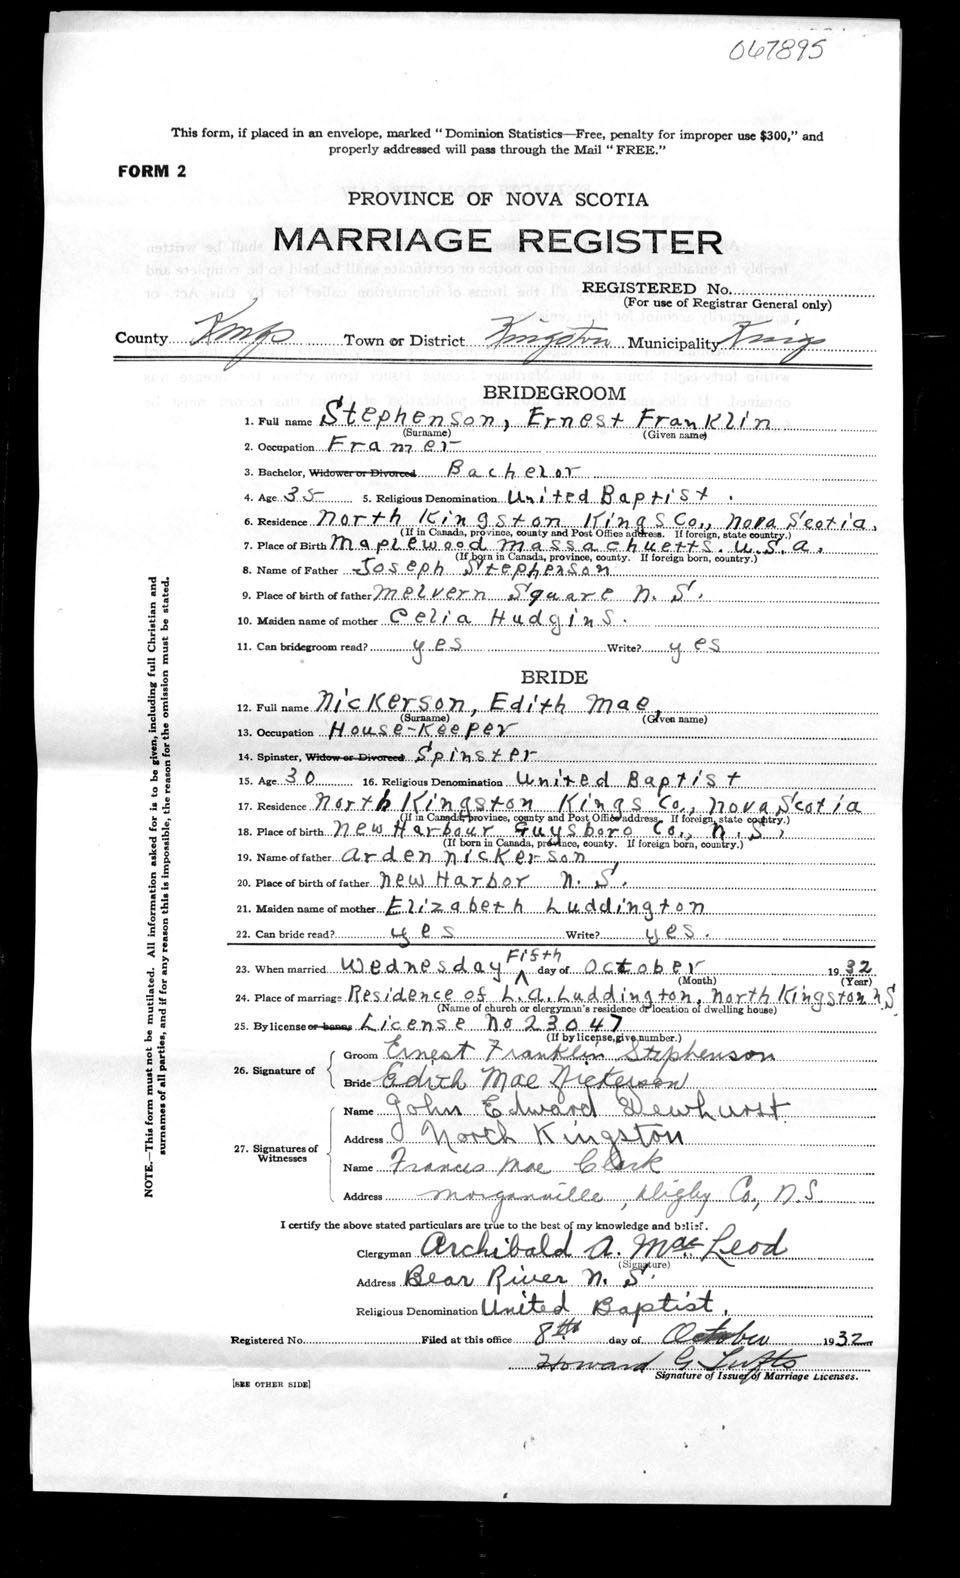 067895
This form, if placed in an envelope, marked "Dominion Statistics—Free, penalty for improper use $300," and
properly addressed will pass through the Mail "FREE."
FORM 2
PROVINCE OF NOVA SCOTIA
MARRIAGE REGISTER
REGISTERED No.
(For use of Registrar General only)
County Kings Town or District Kingston Municipality Kings
BRIDEGROOM
1. Full name Stephenson, Ernest Franklin
(Surname) (Given name)
2. Occupation Framer
3. Bachelor, Widower or Divorced Bachelor
4. Age 35 5. Religious Denomination United Baptist.
6. Residence North Kingston Kings Co., Nova Scotia.
(If in Canada, province, county and Post Office address. If foreign, state country.)
7. Place of Birth Maplewood Massachuetts. U.S.A.
(If born in Canada, province, county. If foreign born, country.)
8. Name of Father Joseph Stephenson
9. Place of birth of father Melvern Square N. S.
10. Maiden name of mother Celia Hudgins.
11. Can bridegroom read? yes Write? yes
BRIDE
12. Full name Nickerson, Edith Mae,
(Surname) (Given name)
13. Occupation House-Keeper
14. Spinster, Widow or Divorced Spinster
15. Age 30 16. Religious Denomination United Baptist
17. Residence North Kingston Kings Co., Nova Scotia
(If in Canada, province, county and Post Office address. If foreign, state country.)
18. Place of birth New Harbour Guysboro Co., N. S.,
(If born in Canada, province, county. If foreign born, country.)
19. Name of father Arden Nickerson,
20. Place of birth of father New Harbor N. S.
21. Maiden name of mother Elizabeth Luddington
22. Can bride read? yes Write? yes.
23. When married Wednesday Fifth day of October 1932
(Month) (Year)
24. Place of marriage Residence of L.A. Luddington, North Kingston N.S.
(Name of church or clergyman's residence or location of dwelling house)
25. By license or banns License No 23047
(If by license, give number.)
26. Signature of Groom Ernest Franklin Stephenson
Bride Edith Mae Nickerson
27. Signatures of Witnesses
Name John Edward Dewhurst
Address North Kingston
Name Frances Mae Clark
Address Morganville, Digby Co., N.S.
I certify the above stated particulars are true to the best of my knowledge and belief.
Clergyman Archibald A. MacLeod
(Signature)
Address Bear River N. S.
Religious Denomination United Baptist.
Registered No. Filed at this office 8th day of October 1932
Howard G Tufts
Signature of Issuer of Marriage Licenses.
[SEE OTHER SIDE]
NOTE.—This form must not be mutilated. All information asked for is to be given, including full Christian and
surnames of all parties, and if for any reason this is impossible, the reason for the omission must be stated.